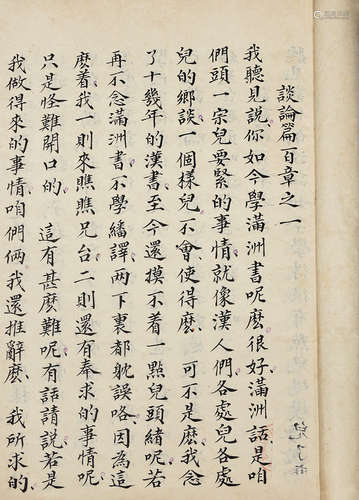 談論篇百章之一
我聽見說你如今學滿洲書呢麽很好滿洲話是咱
們頭一宗兒要緊的事情就像漢人們各處兒各處
兒的鄉談一個樣兒不會使得麽 可不是麽我念
了十幾年的漢書至今還摸不着一點兒頭緒呢若
再不念滿洲書不學繙譯兩下裏都躭誤咯因為這
麽着我一則來瞧瞧兄台二則還有奉求的事情呢
只是怪難開口的 這有甚麽難呢有話請說若是
我做得來的事情咱們倆我還推辭麽 我所求的